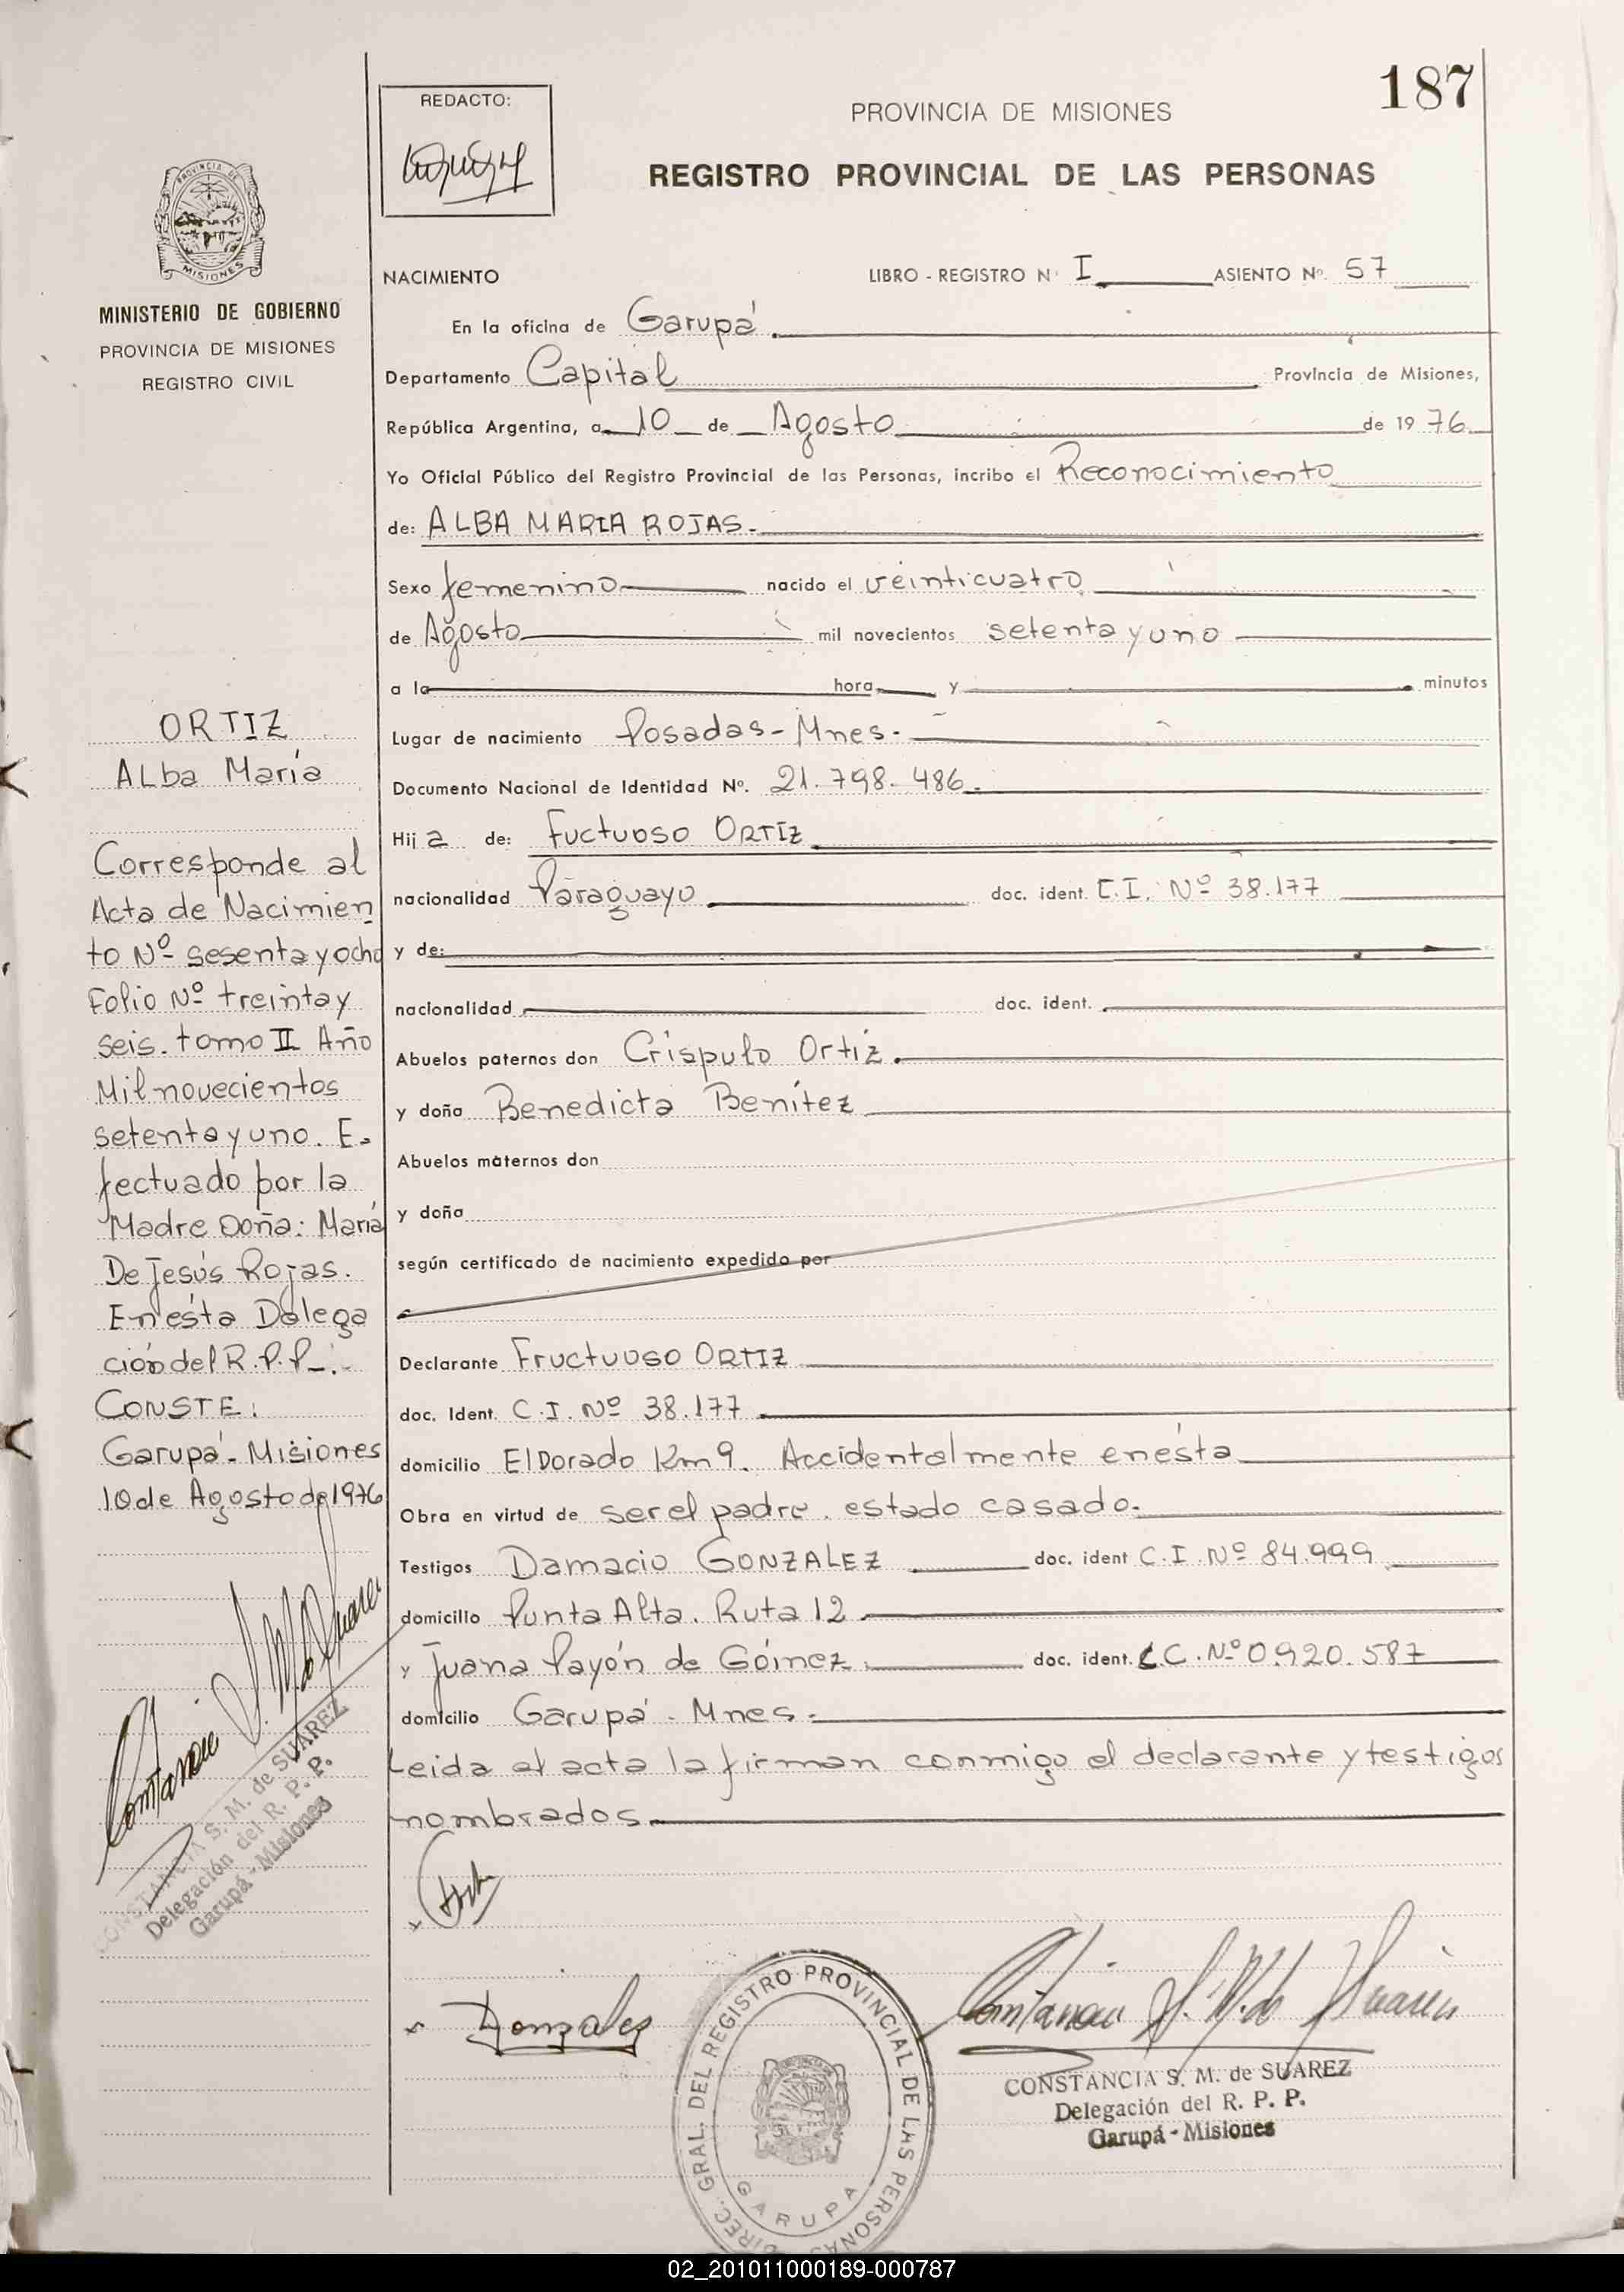 187
REDACTO:
PROVINCIA DE MISIONES
REGISTRO PROVINCIAL DE LAS PERSONAS
PROVINCIA DE
MISIONES
MINISTERIO DE GOBIERNO
PROVINCIA DE MISIONES
REGISTRO CIVIL
NACIMIENTO LIBRO - REGISTRO Nº I ASIENTO Nº. 57
En la oficina de Garupá.
Departamento Capital Provincia de Misiones,
República Argentina, a 10 de Agosto de 19 76
Yo Oficial Público del Registro Provincial de las Personas, incribo el Reconocimiento
de: ALBA MARIA ROJAS.
Sexo femenino nacido el veinticuatro
de Agosto mil novecientos setenta y uno
a la hora y minutos
Lugar de nacimiento Posadas - Mnes.
Documento Nacional de Identidad Nº. 21.798.486.
Hij a de: Fuctuoso ORTIZ
nacionalidad Paraguayo doc. ident. C.I. Nº 38.177
y de:
nacionalidad doc. ident.
Abuelos paternos don Críspulo Ortiz.
y doña Benedicta Benítez
Abuelos maternos don
y doña
según certificado de nacimiento expedido por
Declarante Fructuoso ORTIZ
doc. Ident. C.I. Nº 38.177
domicilio ElDorado Km 9. Accidentalmente en ésta
Obra en virtud de ser el padre. estado casado.
Testigos Damacio GONZALEZ doc. ident C.I. Nº 84.999
domicilio Punta Alta. Ruta 12
y Juana Payón de Gómez doc. ident. L.C. Nº 0.920.587
domicilio Garupá - Mnes.
Leida el acta la firman conmigo el declarante y testigos
nombrados.
ORTIZ
ALba María
Corresponde al
Acta de Nacimien
to Nº sesenta y ocho
Folio Nº treinta y
seis. tomo II Año
Mil novecientos
setenta y uno. E-
fectuado por la
Madre Doña: María
De Jesús Rojas.
En ésta Delega
ción del R.P.P.
CONSTE:
Garupá - Misiones
10 de Agosto de 1976
Constancia S. M. de Suarez
CONSTANCIA S. M. de SUAREZ
Delegación del R. P. P.
Garupá - Misiones
Gonzales
DIREC. GRAL. DEL REGISTRO PROVINCIAL DE LAS PERSONAS
GARUPA
Constancia S. M. de Suarez
CONSTANCIA S. M. de SUAREZ
Delegación del R. P. P.
Garupá - Misiones
02_201011000189-000787